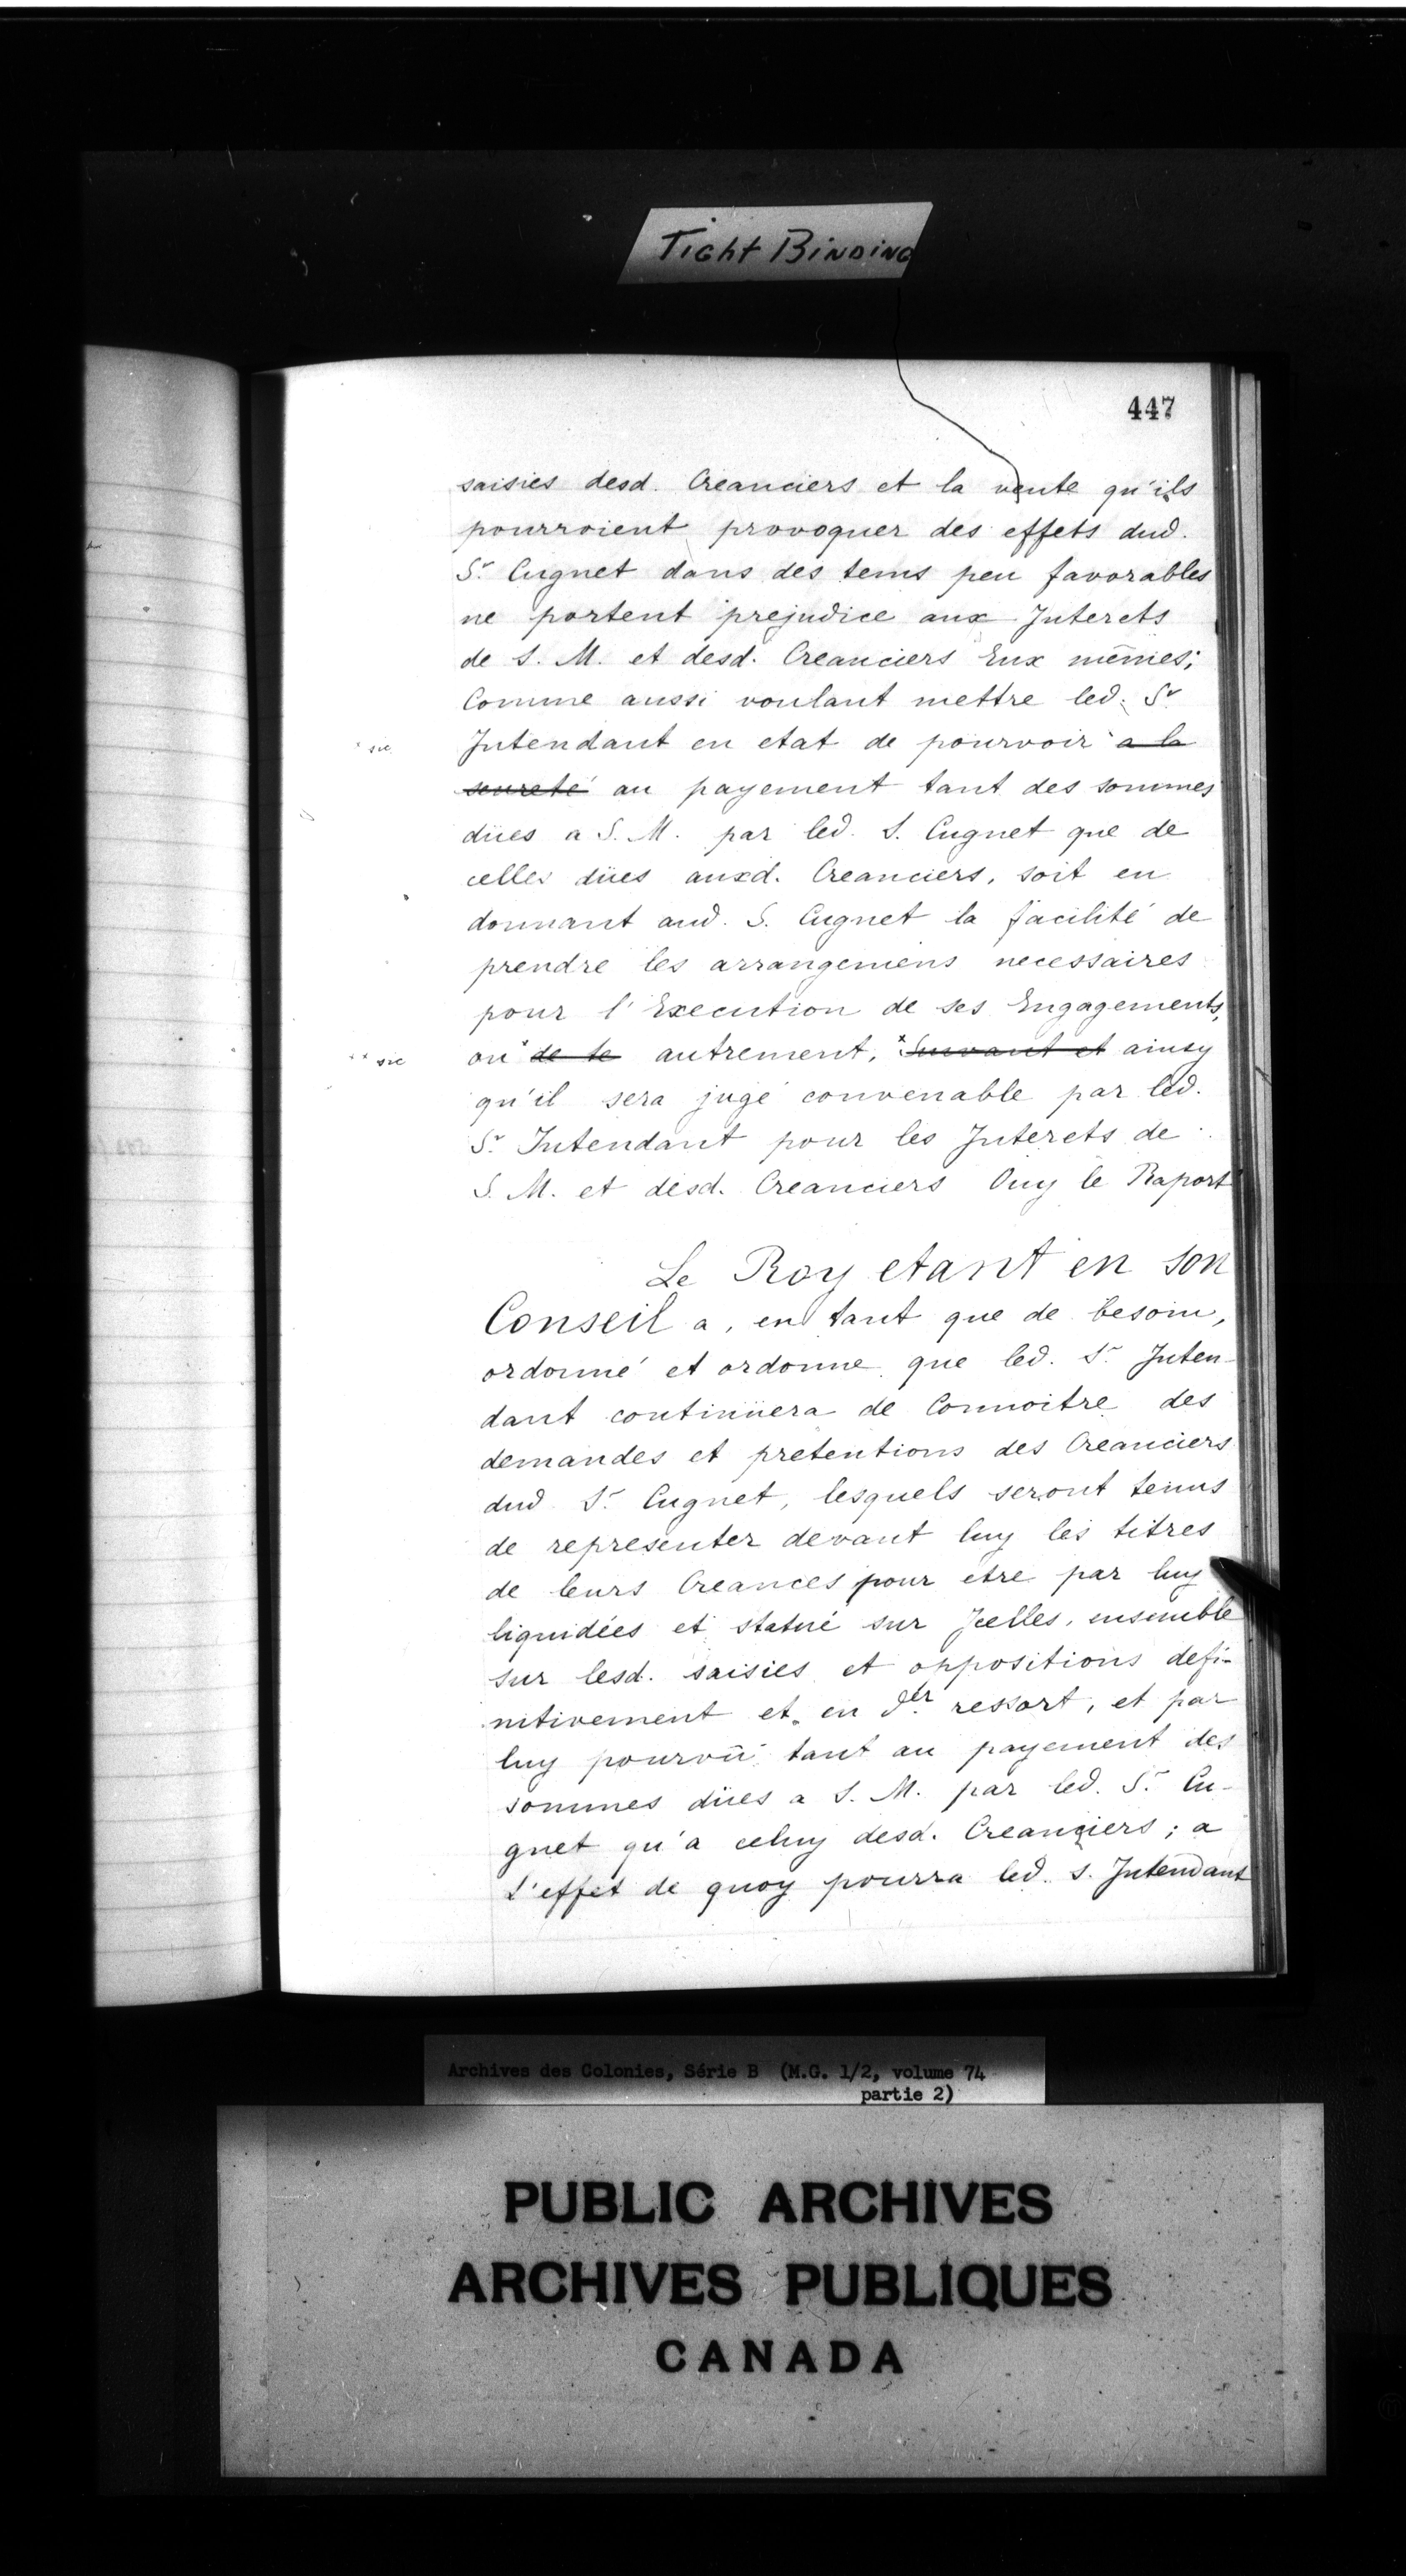 Tight Binding
447
saisies desd. Creanciers et la vente qu'ils
pourroient provoquer des effets dud.
Sr. Cugnet dans des tems peu favorables
ne portent prejudice aux Interets
de S. M. et desd. Creanciers Eux mêmes;
Comme aussi voulant mettre led. Sr
* sic Intendant en etat de pourvoir * a la
seureté au payement tant des sommes
dües a S. M. par led. S. Cugnet que de
celles dües auxd. Creanciers, soit en
donnant aud. S. Cugnet la facilité de
prendre les arrangemens necessaires
pour l'Execution de ses Engagements,
** sic ou * de le autrement, * Suivant et ainsy
qu'il sera jugé convenable par led.
Sr. Intendant pour les Interets de
S. M. et desd. Creanciers Ouy le Raport
Le Roy etant en son
Conseil a, en tant que de besoin,
ordonné et ordonne que led. Sr. Inten-
dant continüera de Connoitre des
demandes et pretentions des Creanciers
dud Sr. Cugnet, lesquels seront tenus
de representer devant luy les titres
de leurs Creances pour etre par luy
liquidées et statué sur Jcelles, ensemble
sur lesd. saisies et oppositions defi-
nitivement et en der. ressort, et par
luy pourvû tant au payement des
sommes dües a S. M. par led. Sr. Cu-
gnet qu'a celuy desd. Creanciers; a
l'effet de quoy pourra led. S. Intendant
Archives des Colonies, Série B (M.G. 1/2, volume 74
partie 2)
PUBLIC ARCHIVES
ARCHIVES PUBLIQUES
CANADA